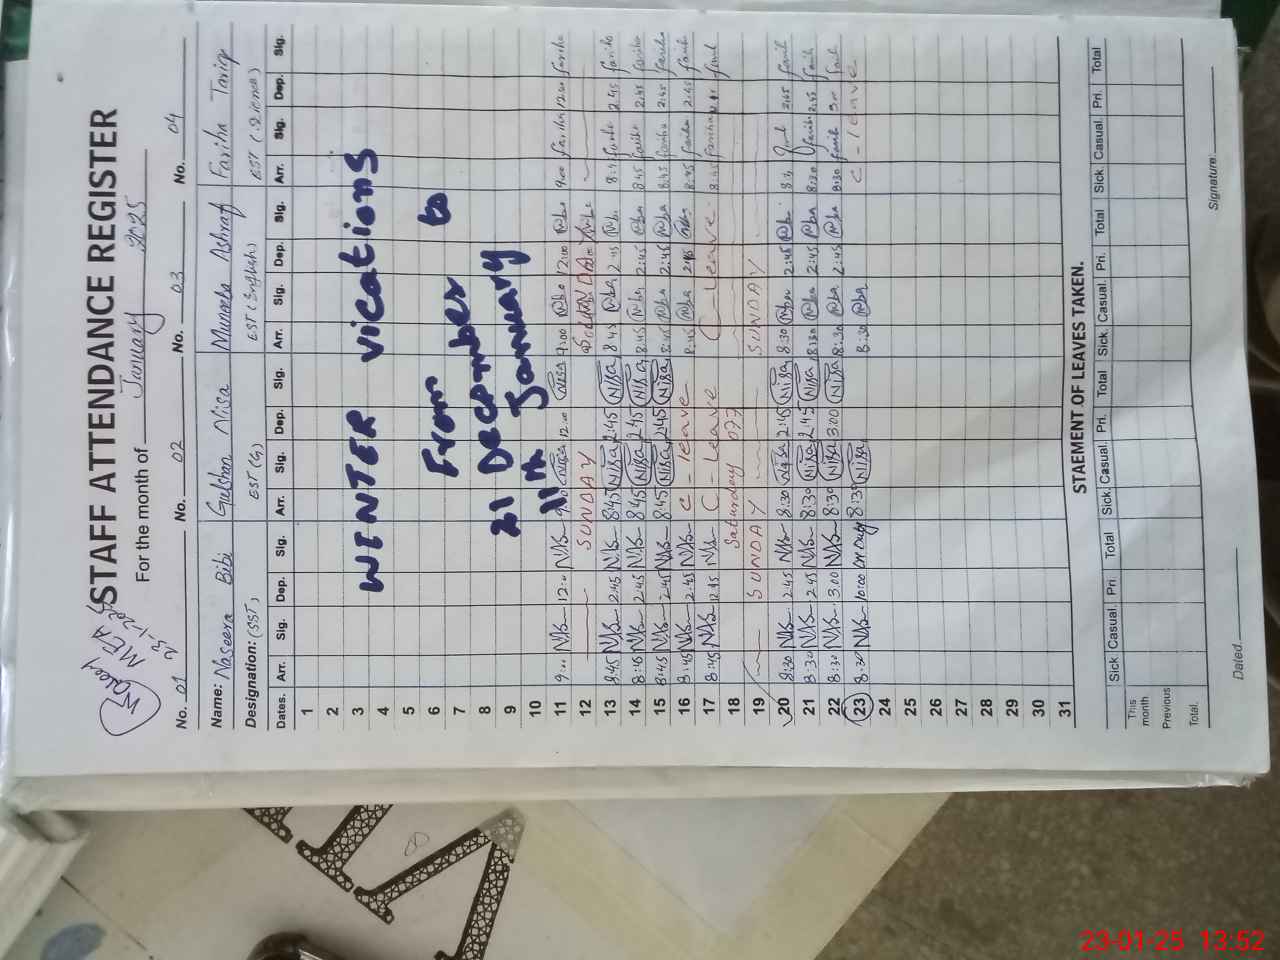 STAFF ATTENDANCE REGISTER
MEA
For the month of January 2025
No. 01 No. 02 No. 03 No. 04
Name: Naseera Bibi Gulshan Nisa Muneeba Ashraf Fariha Tariq
Designation: (SST) EST (G) EST (English) EST (Science)
Dates. Arr. Sig. Dep. Sig. Arr. Sig. Dep. Sig. Arr. Sig. Dep. Sig. Arr. Sig. Dep. Sig.
1
2
3 WINTER vications
4
5
6 From to
7
8 21 December
9 11th January
10
11 9:00 12:00 Nisa 9:00 12:00 9:00 Fariha 12:00 Fariha
12 SUNDAY
13 8:45 2:45 8:45 Nisa 2:45 Nisa 8:45 2:45 2:45
14 8:45 2:45 8:45 Nisa 2:45 Nisa 8:45 2:45 8:45 Fariha 2:45 Fariha
15 8:45 2:45 8:45 Nisa 2:45 Nisa 8:45 2:45 8:45 Fariha 2:45 Fariha
16 8:45 2:45 C - leave 8:45 2:45 8:45 Fariha 2:45
17 8:45 12:15 C - leave C - leave 8:45 Fariha
18 Saturday off
19 SUNDAY SUNDAY
20 8:30 2:45 8:30 Nisa 2:45 Nisa 8:30 2:45 2:45
21 8:30 2:45 8:30 Nisa 2:45 Nisa 8:30 2:45 8:30 Fariha 2:45
22 8:30 3:00 8:30 Nisa 3:00 Nisa 8:30 2:45 8:30
23 8:30 10:00 On Duty 8:30 Nisa 8:30 C - leave
24
25
26
27
28
29
30
31
STAEMENT OF LEAVES TAKEN.
Sick Casual. Pri. Total Sick. Casual. Pri. Total Sick. Casual. Pri. Total Sick. Casual. Pri. Total
This month
Previous
Total.
Dated. Signature:
23-01-25 13:52